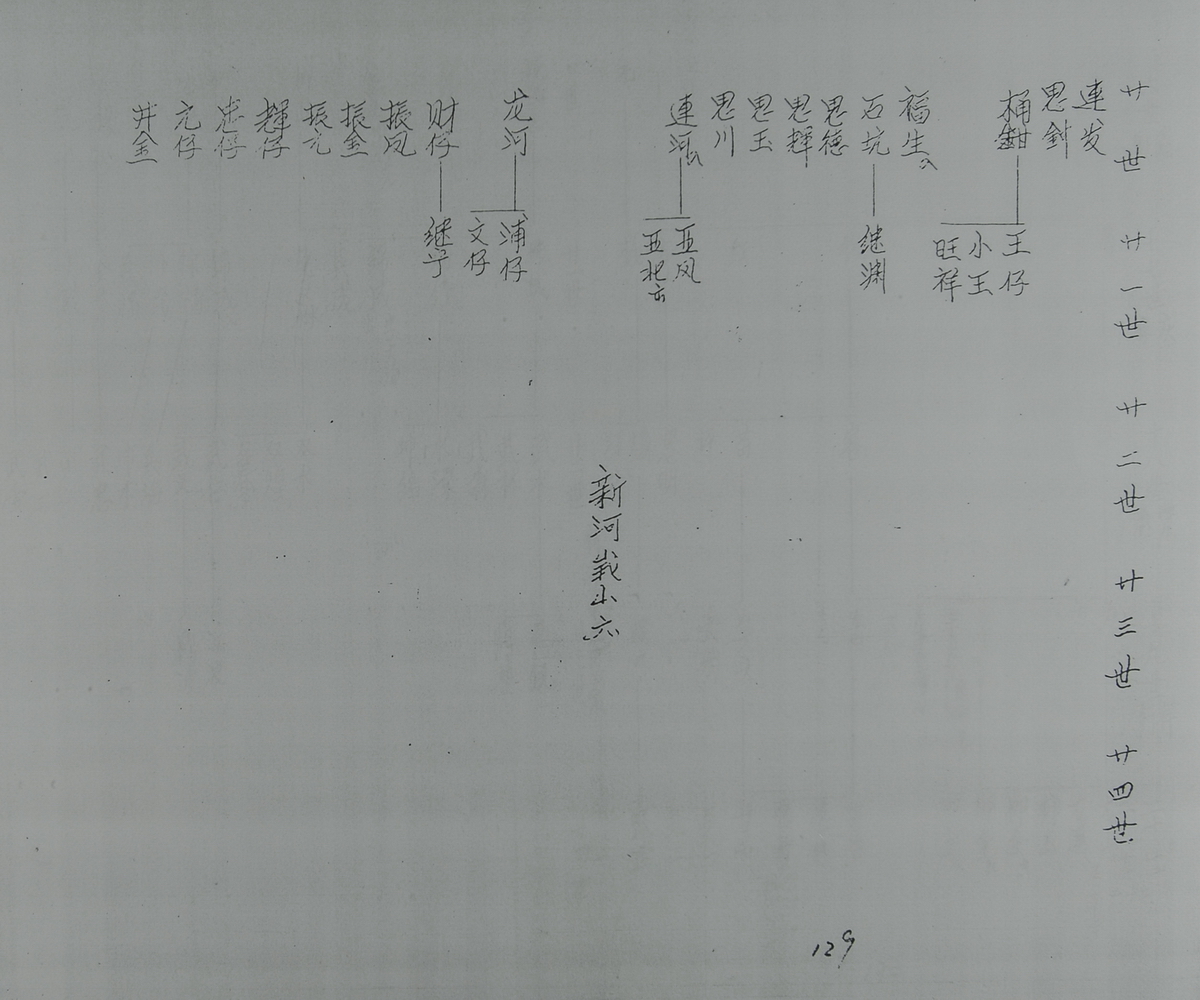 廿世
廿一世
廿二世
廿三世
廿四世
連发
思釗
桶鉗
福生
石坑
思德
思輝
思玉
思川
連河
龙河
财仔
振凤
振金
振元
輝仔
忠仔
元仔
井金
王仔
小玉
旺祥
继渊
亚风
亚北
浦仔
文仔
继宁
新河
129